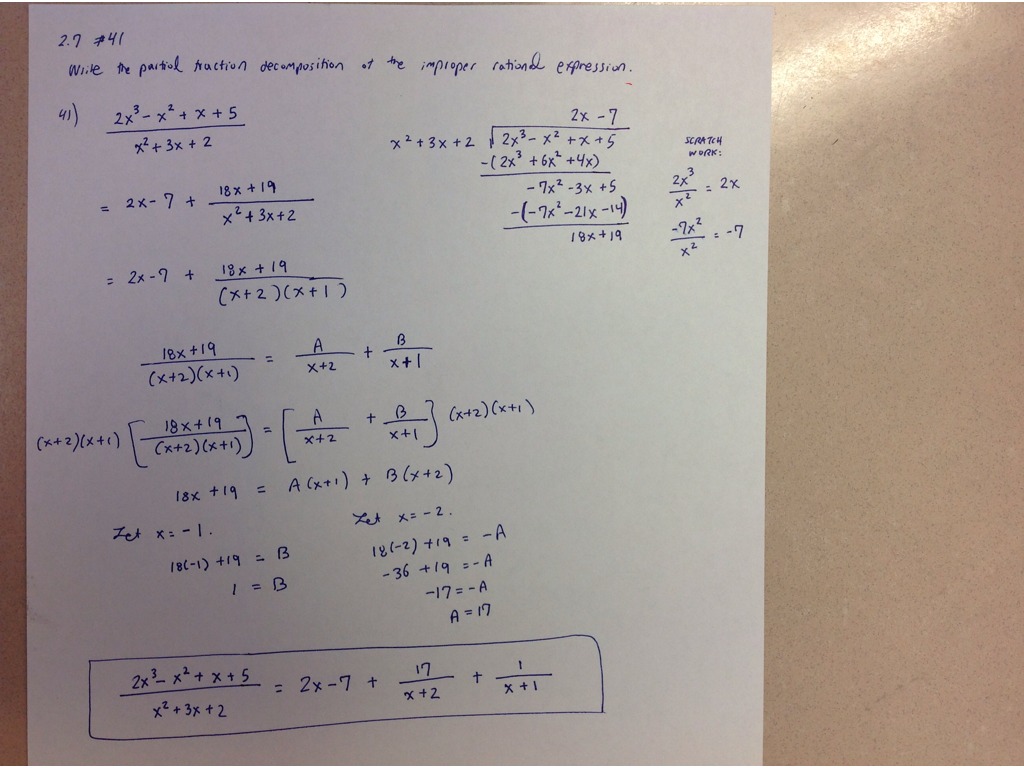 2.7 #41
Write the partial fraction decomposition of the improper rational expression.
41) (2x³ - x² + x + 5) / (x² + 3x + 2)
= 2x - 7 + (18x + 19) / (x² + 3x + 2)
= 2x - 7 + (18x + 19) / ((x+2)(x+1))
2x - 7
x² + 3x + 2 √ 2x³ - x² + x + 5
-(2x³ + 6x² + 4x)
-7x² - 3x + 5
-(-7x² - 21x - 14)
18x + 19
SCRATCH
WORK:
2x³ / x² = 2x
-7x² / x² = -7
(18x + 19) / ((x+2)(x+1)) = A / (x+2) + B / (x+1)
(x+2)(x+1) [(18x + 19) / ((x+2)(x+1))] = [A / (x+2) + B / (x+1)] (x+2)(x+1)
18x + 19 = A(x+1) + B(x+2)
Let x = -1.
18(-1) + 19 = B
1 = B
Let x = -2.
18(-2) + 19 = -A
-36 + 19 = -A
-17 = -A
A = 17
(2x³ - x² + x + 5) / (x² + 3x + 2) = 2x - 7 + 17 / (x+2) + 1 / (x+1)